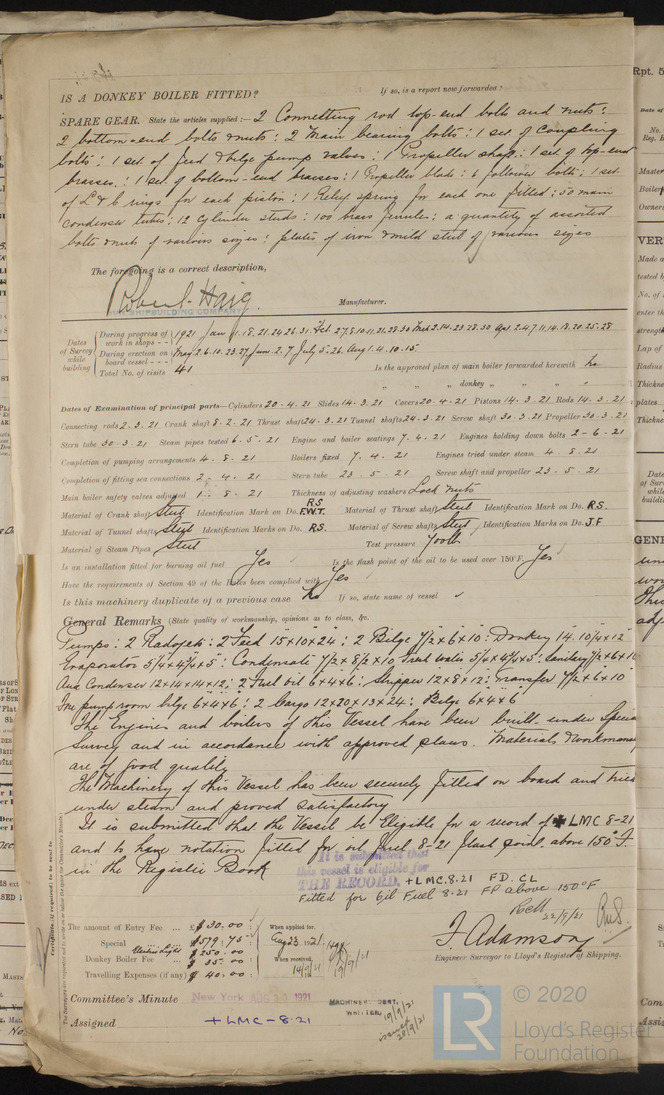 IS A DONKEY BOILER FITTED? If so, is a report now forwarded?
SPARE GEAR. State the articles supplied:— 2 Connecting rod top-end bolts and nuts:
2 bottom-end bolts & nuts: 2 Main bearing bolts: 1 set of Coupling
bolts: 1 set of feed & bilge pump valves: 1 Propeller shaft: 1 set of top-end
brasses: 1 set of bottom-end brasses: 1 Propeller blade: 6 follower bolts; 1 set
of L & C rings for each piston: 1 Relief spring for each one fitted: 50 main
condenser tubes: 12 Cylinder studs: 100 brass ferrules: a quantity of assorted
bolts & nuts of various sizes: plates of iron & mild steel of various sizes
The foregoing is a correct description,
Robert Haig.
SHIPBUILDING COMPANY Manufacturer.
Dates of Survey while building
During progress of work in shops - - 1921 Jan 11.18.21.24.26.31. Feb.
During erection on board vessel - - - May 2.6.10.23.27. June 2.7. July 5.26. Aug 1.4.10.15
Total No. of visits 41 Is the approved plan of main boiler forwarded herewith No
" " " donkey " " "
Dates of Examination of principal parts—Cylinders 20-4-21 Slides 14-3-21 Covers 20-4-21 Pistons 14-3-21 Rods 14-3-21
Connecting rods 2-3-21 Crank shaft 8-2-21 Thrust shaft 24-3-21 Tunnel shafts 24-3-21 Screw shaft 30-3-21 Propeller 30-3-21
Stern tube 30-3-21 Steam pipes tested 6-5-21 Engine and boiler seatings 7-4-21 Engines holding down bolts 2-6-21
Completion of pumping arrangements 4-8-21 Boilers fixed 7-4-21 Engines tried under steam 4-8-21
Completion of fitting sea connections 2-4-21 Stern tube 23-5-21 Screw shaft and propeller 23-5-21
Main boiler safety valves adjusted 1-8-21 Thickness of adjusting washers Lock nuts
Material of Crank shaft Steel Identification Mark on Do. R.S F.W.T. Material of Thrust shaft Steel Identification Mark on Do. R.S.
Material of Tunnel shafts Steel Identification Marks on Do. R.S. Material of Screw shafts Steel Identification Marks on Do. J.F
Material of Steam Pipes Steel Test pressure
Is an installation fitted for burning oil fuel Yes Is the flash point of the oil to be used over 150°F. Yes
Have the requirements of Section 49 of the Rules been complied with Yes
Is this machinery duplicate of a previous case No If so, state name of vessel
General Remarks (State quality of workmanship, opinions as to class, &c.
Pumps: 2 Radojet: 2 Feed 15×10×24: 2 Bilge 7½×6×10: Donkey 14.10¼×12
Evaporator 5¼×4¾×5: Condensate 7½×8½×10 Fresh water 5¼×4¾×5: Sanitary 7½×6×10
Aux Condenser 12×14×14×12: 2 Fuel oil 6×4×6: Stripper 12×8×12: Transfer 7½×6×10
In pump room bilge 6×4×6: 2 Cargo 12×20×13×24: Bilge 6×4×6
The Engines and boilers of this Vessel have been built under Special
survey and in accordance with approved plans. Materials & workmanship
are of good quality
The Machinery of this Vessel has been securely fitted on board and tried
under steam and proved satisfactory
It is submitted that the Vessel be Eligible for a record of +LMC 8-21
and to have notation fitted for oil fuel 8-21 flash point above 150° F.
in the Register Book
It is submitted that
this vessel is eligible for
THE RECORD. +LMC.8.21 FD. CL
Fitted for Oil Fuel 8.21 FP above 150°F
22/9/21
The amount of Entry Fee .. £ $30.00 When applied for,
Special $579.75 Aug 23 1921
$250.00
Donkey Boiler Fee .. £ $35.00 When received,
Travelling Expenses (if any) £ $40.00
J. Adamson
Engineer Surveyor to Lloyd's Register of Shipping.
Committee's Minute New York AUG 1921
MACHINERY DEPT. WRITTEN 19/9/21
Assigned +LMC-8.21
© 2020
LR Lloyd's Register
Foundation